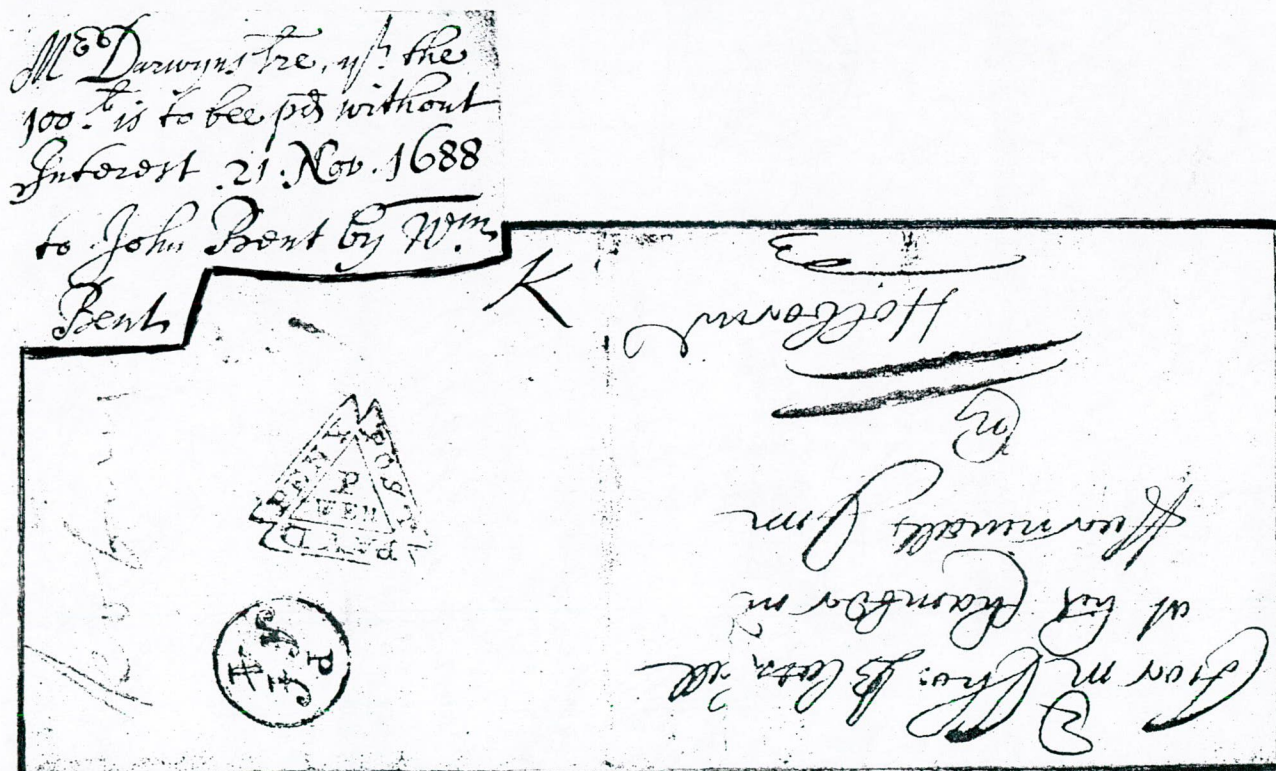 Mr Darwyns Lre, yt the
100.£ is to bee pd without
Interest .21. Nov. 1688
to John Bent by Wm
Bent
K
PENY POST PAYD
P
WEN
P
4
For mr Tho:
at his Chamber in
Inn
in
Holborne